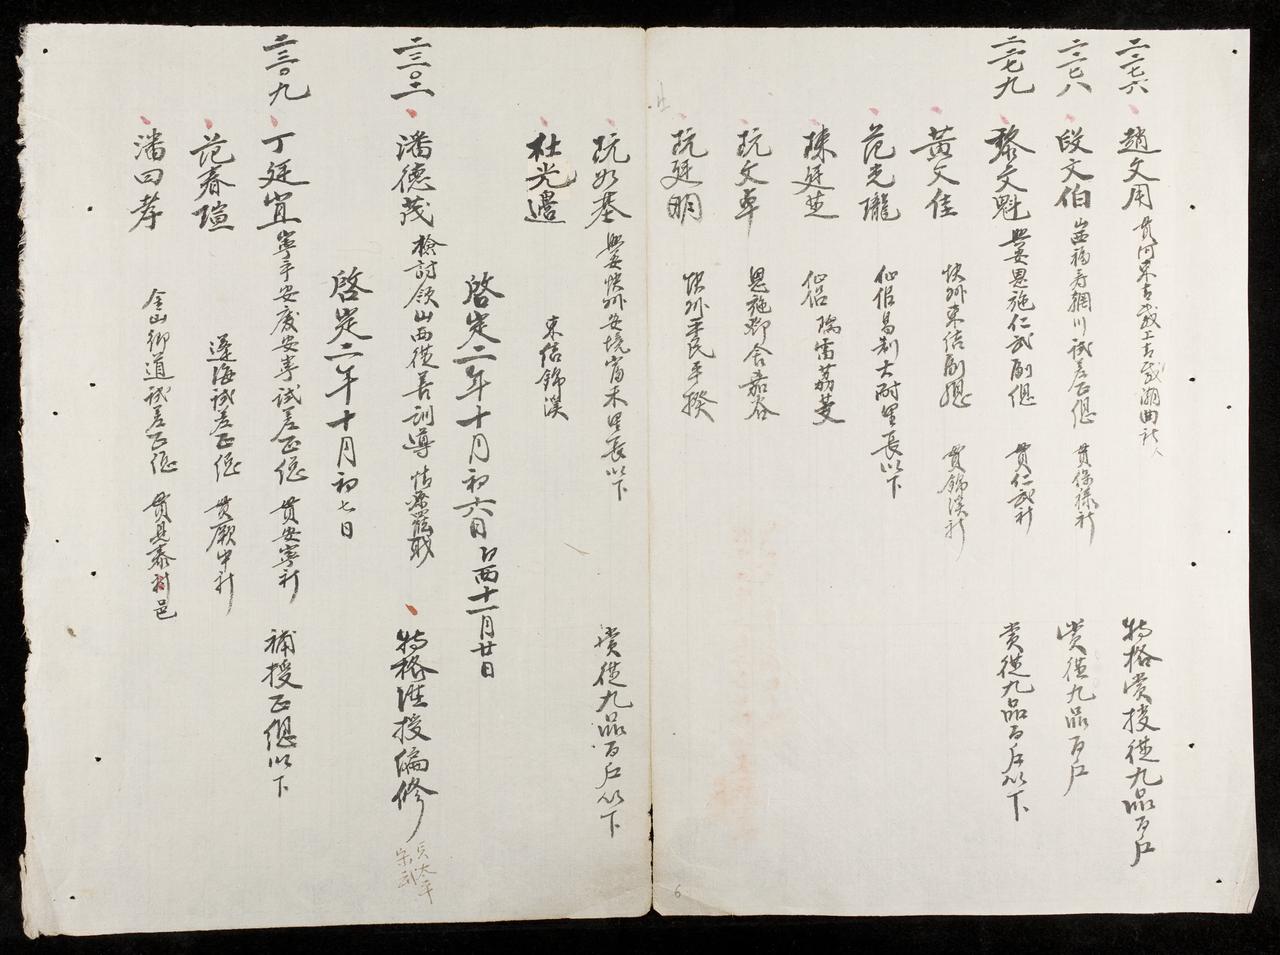 二二七六 趙文用 貫河東吉歲上吉歲湖曲社人 特格賞授從九品百戶
二二七八 段文伯 山西福壽網川試差正總 貫條祿社 賞從九品百戶
二二七九 黎文魁 興安恩施仁武副總 貫仁武社 賞從九品百戶以下
黃文佳 快州東結副總 貫錦溪社
范光瓏 仙侶易制大耐里長以下
陳廷楚 仙侶 瑞雷荔蔓
阮文卓 恩施鄧舍嘉谷
阮廷明 快州平民平揆
阮如基 興安快州安境富禾里長以下 賞從九品百戶以下
杜光邊 東結錦溪
啓定二年十月初六日 占西十一月廿日
二三〇二 潘德茂 檢討領山西從善訓導 特格准授編修
啓定二年十月初七日
二三〇九 丁廷宜 寧平安慶安寧試差正總 貫安寧社 補授正總以下
范春瑄 蓬海試差正總 貫廟中社
潘曰孝 金山御道試差正總 貫具泰社邑
6